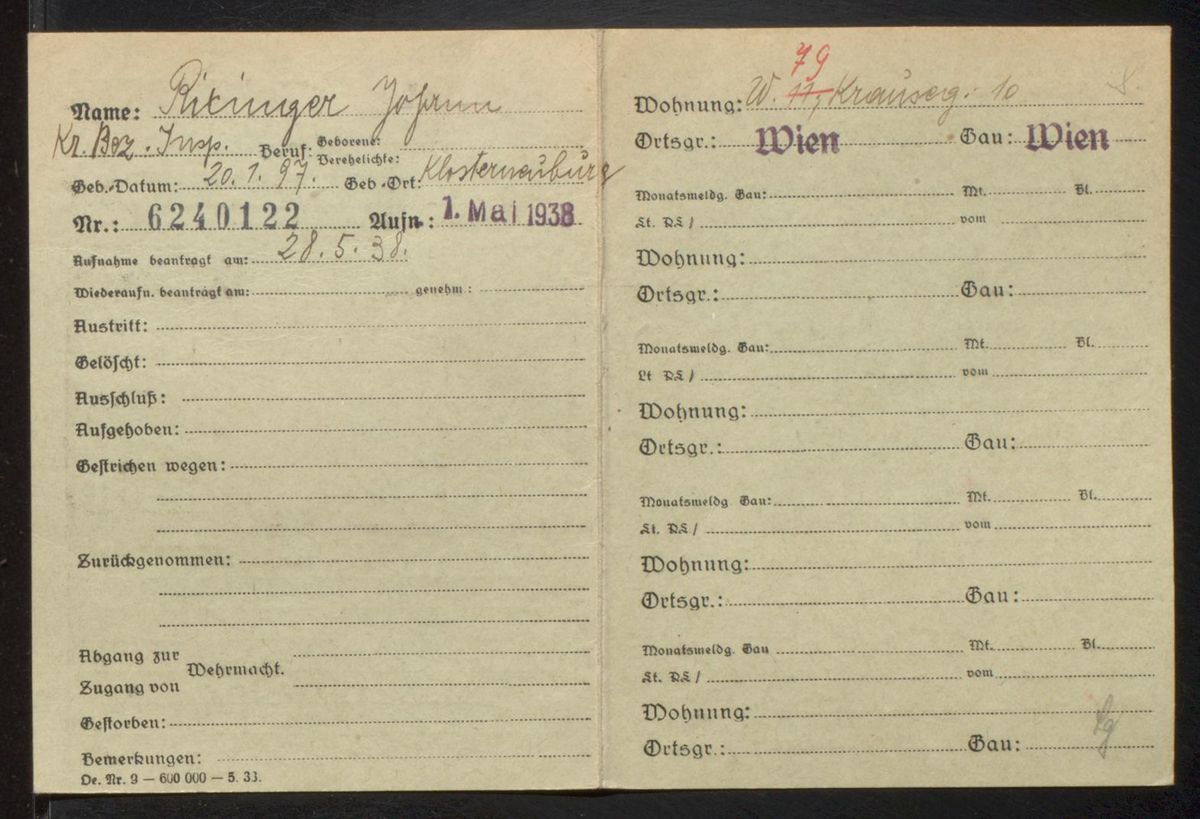 Name: Ritzinger Johann
Kr. Bez. Insp. Beruf: Geborene:
Verehelichte:
Geb.-Datum: 20.1.97. Geb.-Ort: Klosterneuburg
Nr.: 6240122 Aufn.: 1. Mai 1938
Aufnahme beantragt am: 28.5.38.
Wiederaufn. beantragt am: genehm.:
Austritt:
Gelöscht:
Ausschluß:
Aufgehoben:
Gestrichen wegen:
Zurückgenommen:
Abgang zur
Wehrmacht.
Zugang von
Gestorben:
Bemerkungen:
De. Nr. 9 — 600 000 — 5. 33.
79
Wohnung: W. 17, Krauseg. 10
Ortsgr.: Wien Gau: Wien
Monatsmeldg. Gau: Mt. Bl.
Lt. RL/ vom
Wohnung:
Ortsgr.: Gau:
Monatsmeldg. Gau: Mt. Bl.
Lt RL/ vom
Wohnung:
Ortsgr.: Gau:
Monatsmeldg. Gau: Mt. Bl.
Lt. RL/ vom
Wohnung:
Ortsgr.: Gau:
Monatsmeldg. Gau Mt. Bl.
Lt. RL/ vom
Wohnung:
Ortsgr.: Gau: